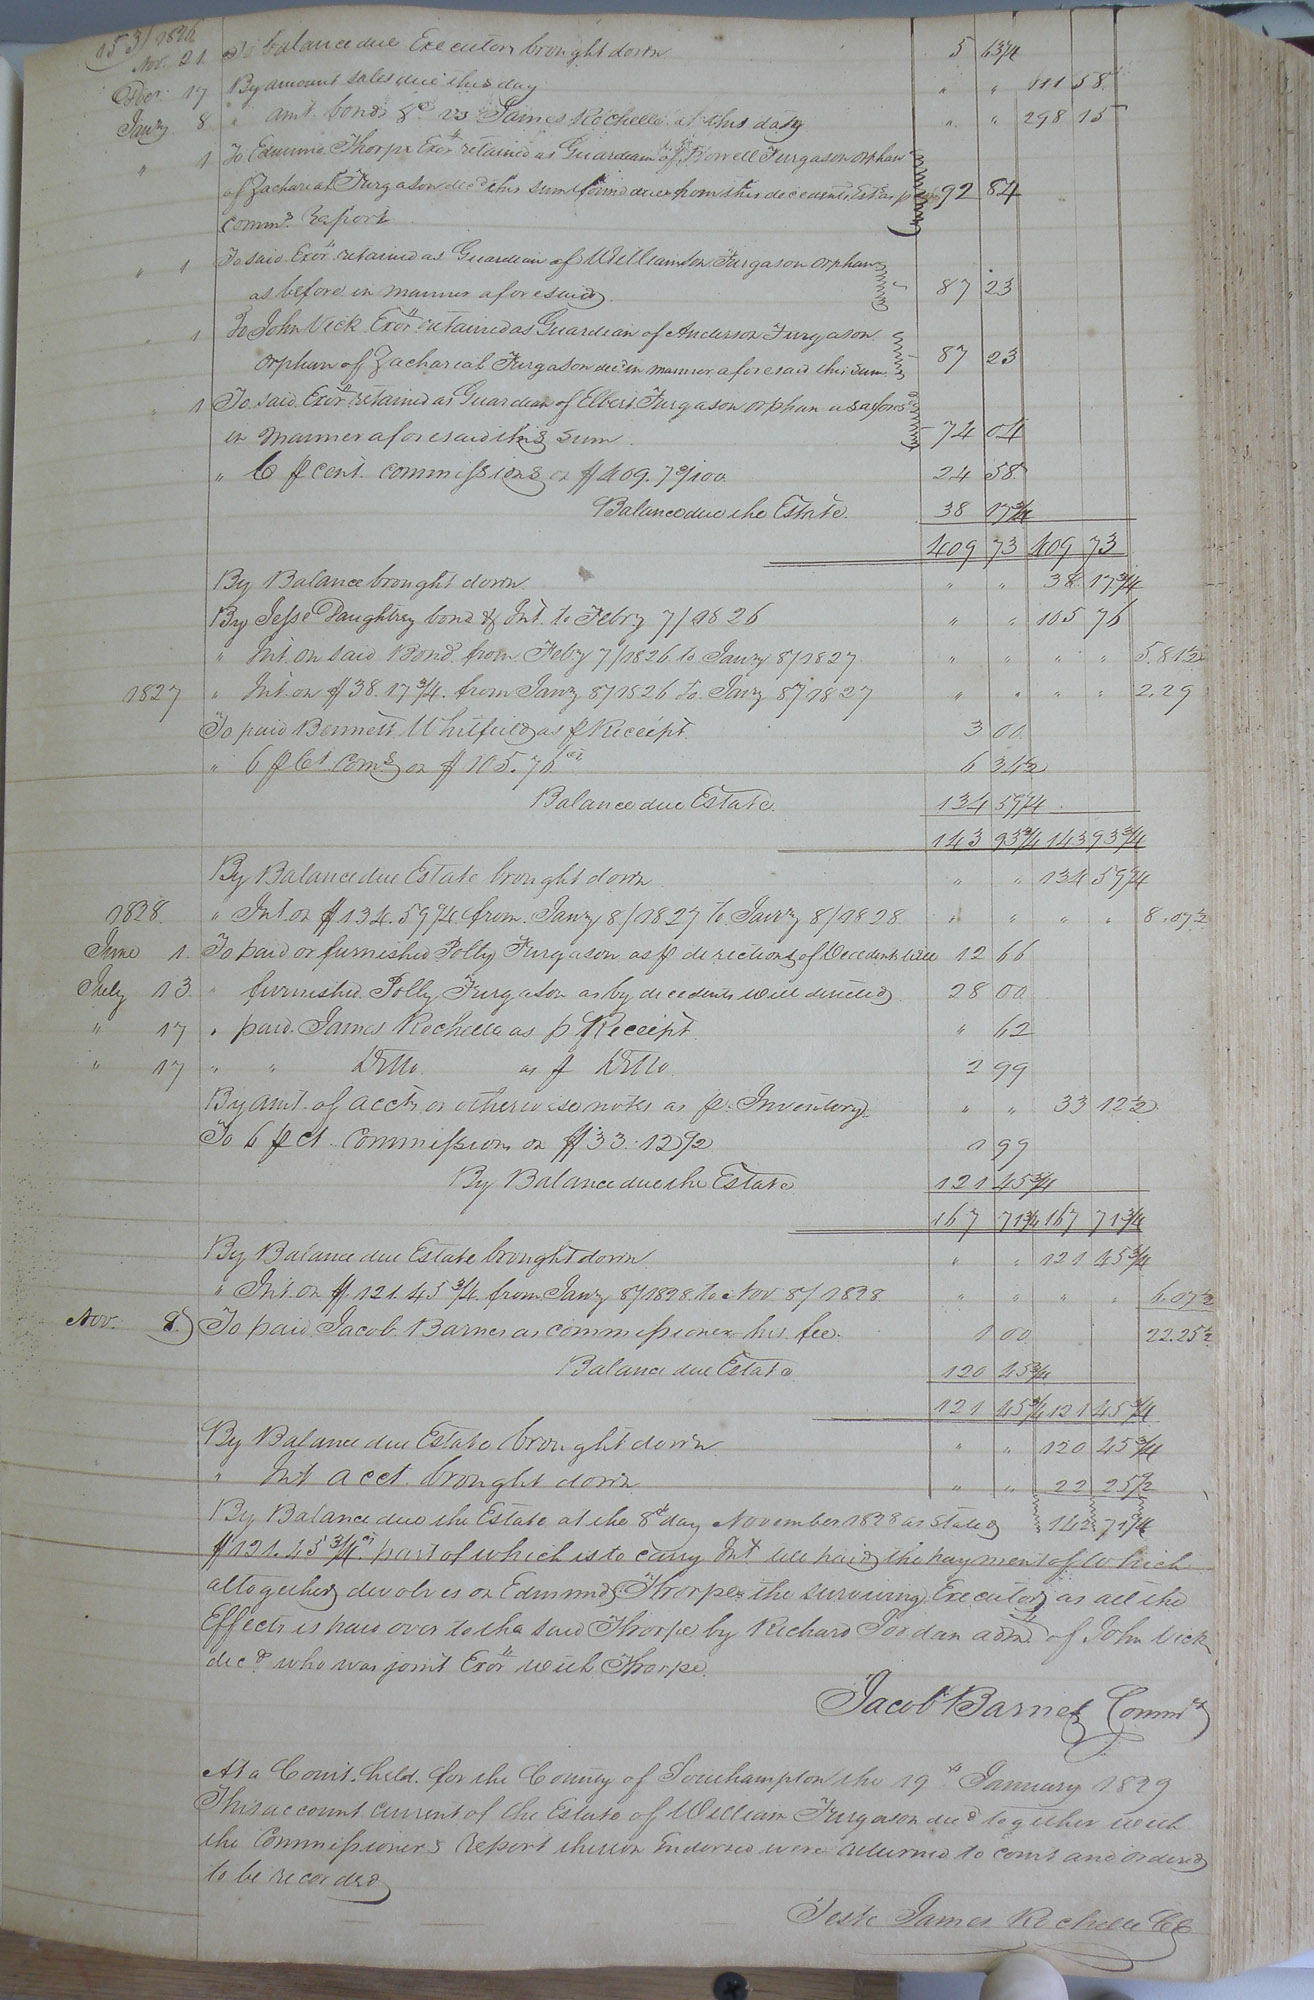 153/1826
Nov. 21. To balance due Executors brought down 5 63 3/4
Decr 17 By amount sales due this day " " 111 58
Jany 8 " amt. bonds &c vs James Rochelle at this date " " 298 15
" 1 To Edmund Thorpe Exor retained as Guardian of Howell Furgason orphan
of Zachariah Furgason decd this sum found due from this decedents Estate p
Comm.rs Report 92 84
" 1 To said Exor retained as Guardian of Williamson Furgason orphan
as before in manner aforesaid 87 23
1 To John Vick Exor retained as Guardian of Anderson Furgason
orphan of Zachariah Furgason decd in manner aforesaid this sum 87 23
" 1 To said Exor retained as Guardian of Elbert Furgason orphan as afores.d
in manner aforesaid this sum 74 04
" 6 p cent. commissions on $409.73/100 24 58
Balance due the Estate. 38 17 3/4
409 73 409 73
By Balance brought down " " 38 17 3/4
By Jesse Daughtrey bond & Int. to Febry 7/1826 " " 105 76
" Int. on said Bond from Feby 7/1826 to Jany 8/1827 " " " " 5.81 1/2
1827 " Int. on $38.17 3/4 from Jany 8/1826 to Jany 8/1827 " " " " 2.29
To paid Bennett Whitfield as p Receipt 3 00
" 6 p Ct Coms on $105.76 cts 6 34 1/2
Balance due Estate. 134 59 1/4
143 93 3/4 143 93 3/4
By Balance due Estate brought down " " 134 59 1/4
1828 " Int. on $134.59 1/4 from Jany 8/1827 to Jany 8/1828 " " " " 8.07 1/2
June 1. To paid or furnished Polly Furgason as p directions of Decedents will 12 66
July 13 " furnished Polly Furgason as by decedents will directed 28 00
" 17 " paid James Rochelle as p Receipt " 62
" 17 " " Ditto as p Ditto 2 99
By amt. of accts or otherwise notes as p. Inventory " " 33 12 1/2
To 6 p ct. Commissions on $33.12 1/2 1 99
By Balance due the Estate 121 45 3/4
167 71 3/4 167 71 3/4
By Balance due Estate brought down " " 121 45 3/4
" Int. on $121.45 3/4 from Jany 8/1828 to Nov 8/1828 " " " " 6.07 1/2
Nov. 8 To paid Jacob Barnes as commissioner his fee. 1 00 22.25 1/2
Balance due Estate 120 45 3/4
121 45 3/4 121 45 3/4
By Balance due Estate brought down " " 120 45 3/4
" Int acct. brought down " " 22 25 1/2
By Balance due the Estate at the 8th day November 1828 as stated 142 71 1/4
$121.45 3/4 cts part of which is to carry Int till paid the payment of which
altogether devolves on Edmund Thorpe the surviving Executor as all the
Effects is paid over to the said Thorpe by Richard Jordan admr of John Vick
decd who was joint Exor with Thorpe.
Jacob Barnes Commr
At a Court held for the County of Southampton the 19th January 1829
This account current of the Estate of William Furgason decd together with
the Commissioners report thereon Endorsed were returned to court and ordered
to be recorded
Teste James Rochelle CC